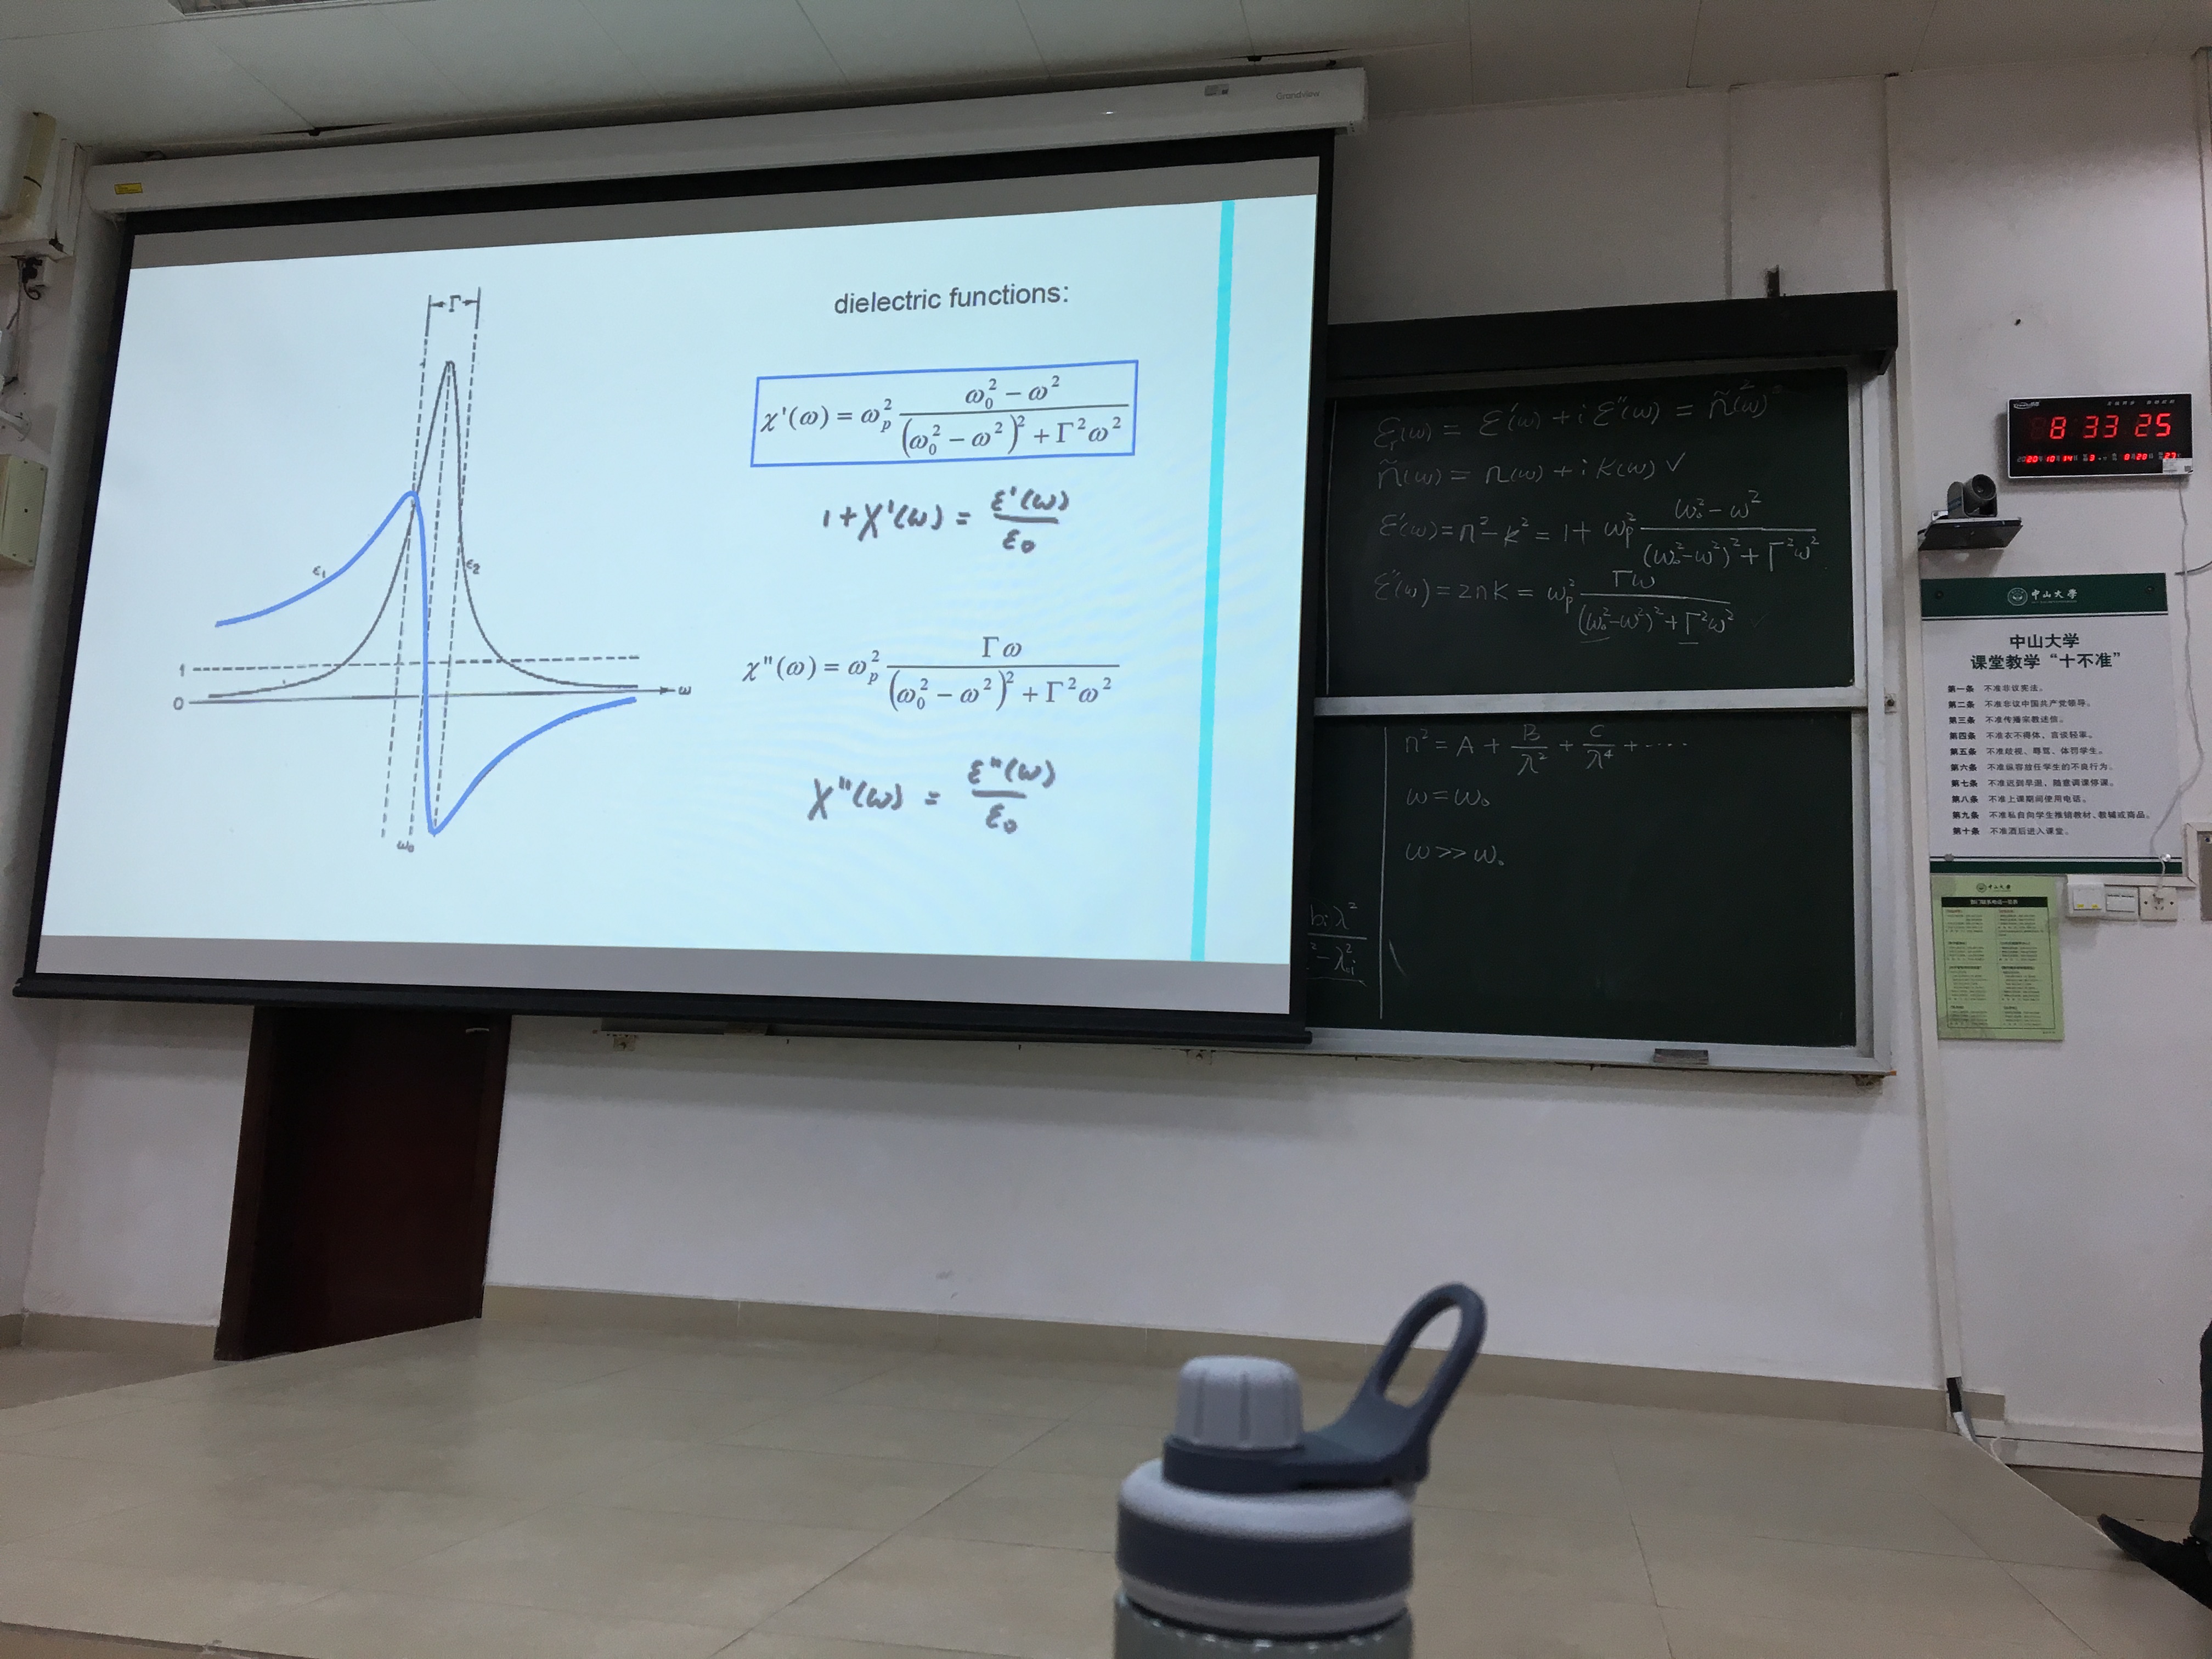 Grandview
dielectric functions:
Γ
ε₁
ε₂
1
0
ω
ω₀
χ'(ω) = ω_p² (ω₀² − ω²) / ((ω₀² − ω²)² + Γ²ω²)
1+χ'(ω) = ε'(ω) / ε₀
χ"(ω) = ω_p² Γω / ((ω₀² − ω²)² + Γ²ω²)
χ"(ω) = ε"(ω) / ε₀
ε_r(ω) = ε'(ω) + i ε"(ω) = ñ(ω)²
ñ(ω) = n(ω) + i k(ω) ✓
ε'(ω) = n² − k² = 1 + ω_p² (ω₀² − ω²) / ((ω₀² − ω²)² + Γ²ω²)
ε"(ω) = 2nk = ω_p² Γω / ((ω₀² − ω²)² + Γ²ω²)
n² = A + B/λ² + C/λ⁴ + ····
ω = ω₀
ω >> ω₀
8 33 25
中山大学
中山大学
课堂教学“十不准”
第一条 不准非议宪法。
第二条 不准非议中国共产党领导。
第三条 不准传播宗教迷信。
第四条 不准衣不得体、言谈轻率。
第五条 不准歧视、辱骂、体罚学生。
第六条 不准纵容放任学生的不良行为。
第七条 不准迟到早退，随意调课停课。
第八条 不准上课期间使用电话。
第九条 不准私自向学生推销教材、教辅或商品。
第十条 不准酒后进入课堂。
中山大学